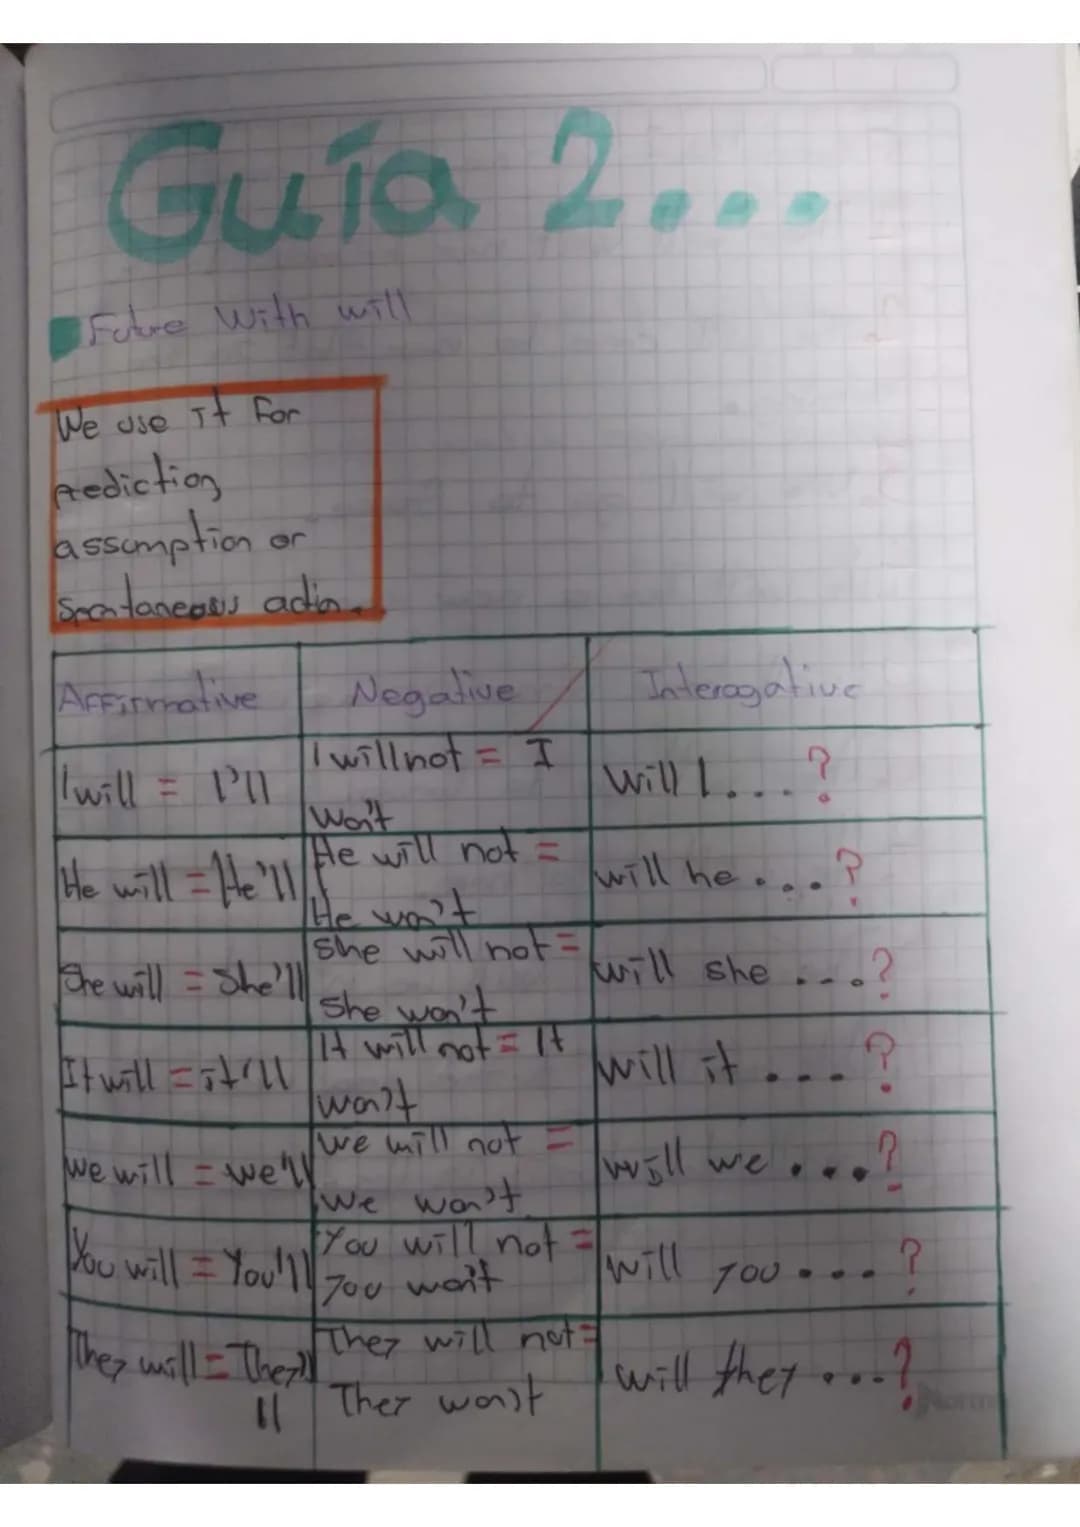 Guía 2...
Future With will
We use It For
Prediction,
assumption or
Spontaneous action.
Affirmative Negative Interogative
I will = I'll
I will not = I
Won't
Will I....?
He will = He'll
He will not =
He won't
will he ....?
She will = She'll
She will not =
She won't
will she ....?
It will = it'll
It will not = It
won't
will it ....?
We will = we'll
We will not =
We won't
will we ....?
You will = You'll
You will not =
You won't
Will you ....?
They will = They'll
ll
They will not =
They won't
will they ....?
Norma